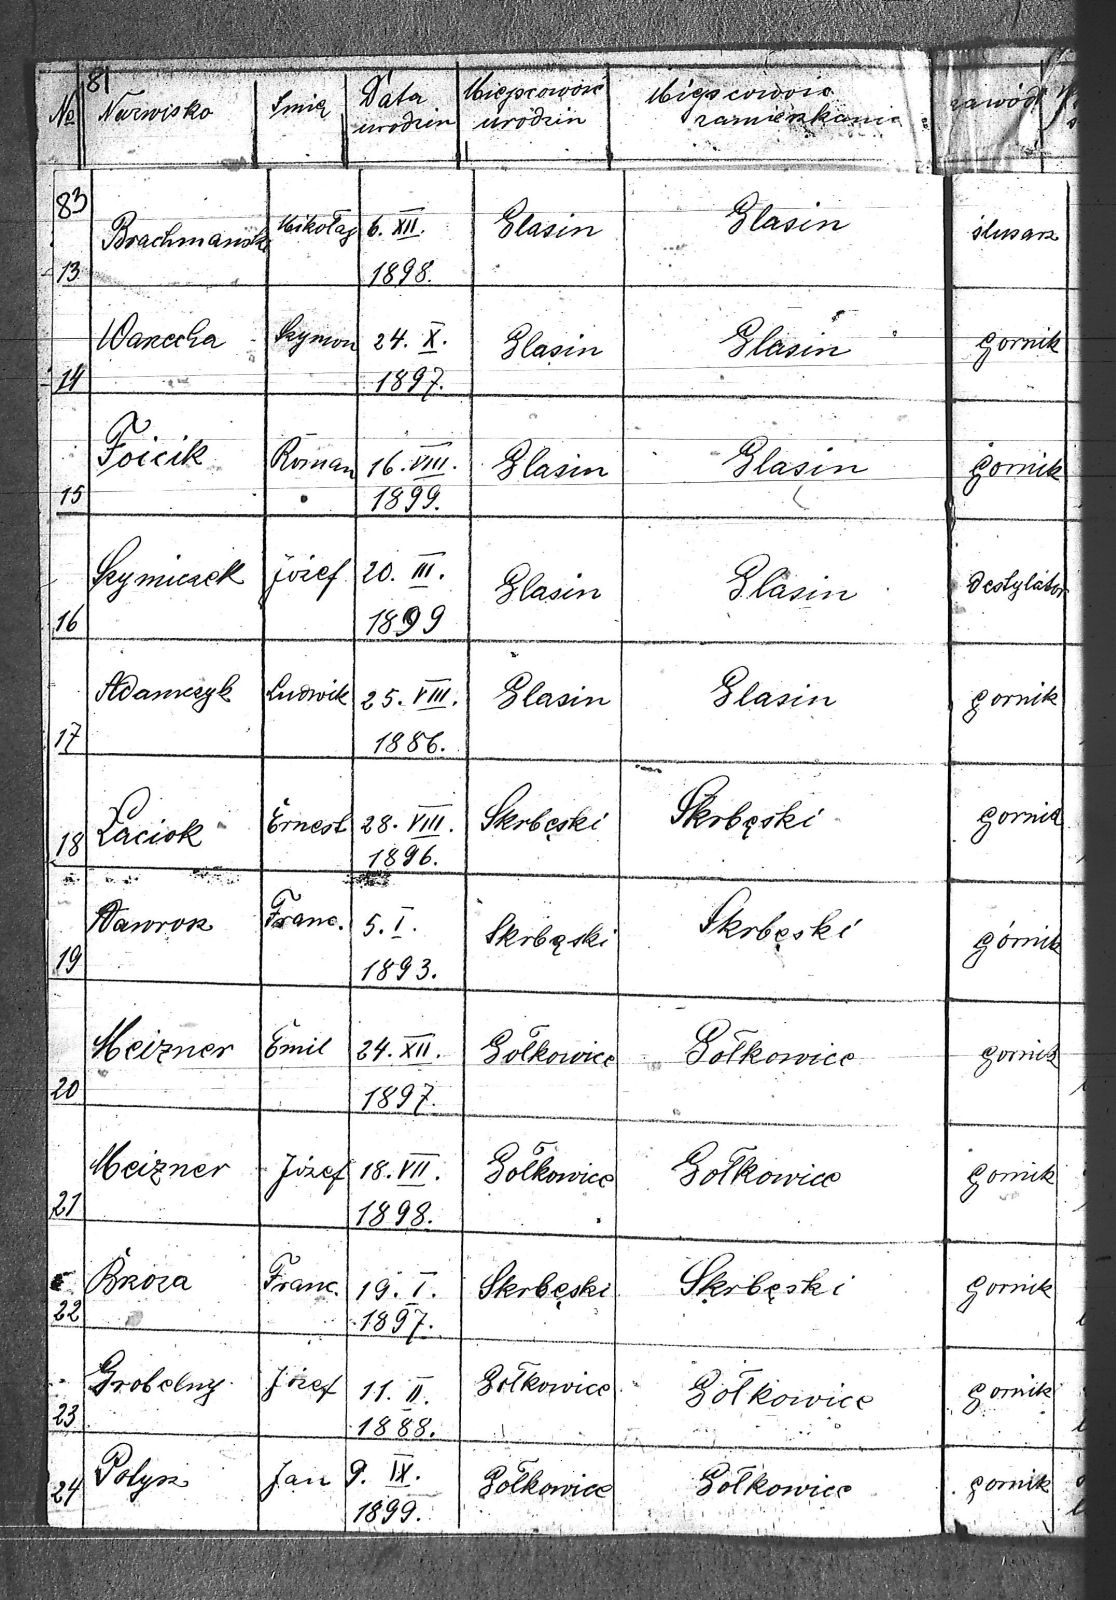 81
№ Nazwisko Imię Data urodzin Miejscowość urodzin Miejscowość zamieszkania zawód
83
13 Brachmański Mikołaj 6. XII. 1898. Glasin Glasin ślusarz
14 Warzecha Szymon 24. X. 1897. Glasin Glasin gornik
15 Foicik Roman 16. VIII. 1899. Glasin Glasin gornik
16 Szymiczek Józef 20. III. 1899 Glasin Glasin destylátor
17 Adamczyk Ludwik 25. VIII. 1886. Glasin Glasin gornik
18 Łaciok Ernest 28. VIII. 1896. Skrbęski Skrbęski gornik
19 Nawrok Franc. 5. I. 1893. Skrbąski Skrbęski górnik
20 Meizner Emil 24. XII. 1897. Gołkowice Gołkowice gornik
21 Meizner Józef 18. VII. 1898. Gołkowice Gołkowice gornik
22 Brzoza Franc. 19. I. 1897. Skrbęski Skrbęski gornik
23 Grobelny Józef 11. II. 1888. Gołkowice Gołkowice gornik
24 Połysz Jan 9. IX. 1899. Gołkowice Gołkowice gornik